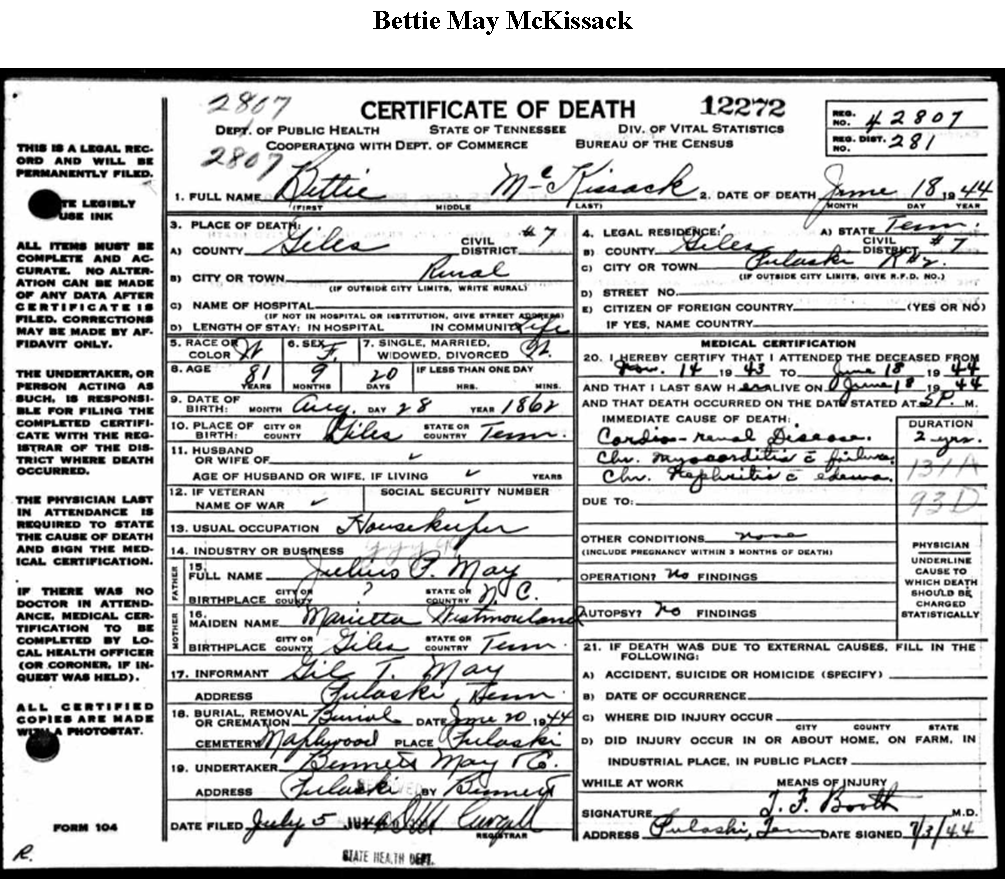 Bettie May McKissack
2807
CERTIFICATE OF DEATH 12272
REG. NO. 42807
DEPT. OF PUBLIC HEALTH STATE OF TENNESSEE DIV. OF VITAL STATISTICS
REG. DIST. NO. 281
2807 COOPERATING WITH DEPT. OF COMMERCE BUREAU OF THE CENSUS
THIS IS A LEGAL RECORD AND WILL BE PERMANENTLY FILED.
LEGIBLY
USE INK
ALL ITEMS MUST BE
COMPLETE AND AC-
CURATE. NO ALTER-
ATION CAN BE MADE
OF ANY DATA AFTER
CERTIFICATE IS
FILED. CORRECTIONS
MAY BE MADE BY AF-
FIDAVIT ONLY.
THE UNDERTAKER, OR
PERSON ACTING AS
SUCH, IS RESPONSI-
BLE FOR FILING THE
COMPLETED CERTIFI-
CATE WITH THE REG-
ISTRAR OF THE DIS-
TRICT WHERE DEATH
OCCURRED.
THE PHYSICIAN LAST
IN ATTENDANCE IS
REQUIRED TO STATE
THE CAUSE OF DEATH
AND SIGN THE MED-
ICAL CERTIFICATION.
IF THERE WAS NO
DOCTOR IN ATTEND-
ANCE, MEDICAL CER-
TIFICATION TO BE
COMPLETED BY LO-
CAL HEALTH OFFICER
(OR CORONER, IF IN-
QUEST WAS HELD).
ALL CERTIFIED
COPIES ARE MADE
WITH A PHOTOSTAT.
FORM 104
R.
1. FULL NAME Bettie McKissack 2. DATE OF DEATH June 18 1944
(FIRST) MIDDLE (LAST) MONTH DAY YEAR
3. PLACE OF DEATH:
A) COUNTY Giles CIVIL DISTRICT #7
B) CITY OR TOWN Rural
(IF OUTSIDE CITY LIMITS, WRITE RURAL)
C) NAME OF HOSPITAL
(IF NOT IN HOSPITAL OR INSTITUTION, GIVE STREET ADDRESS)
D) LENGTH OF STAY: IN HOSPITAL IN COMMUNITY Life
5. RACE OR COLOR W 6. SEX F. 7. SINGLE, MARRIED, WIDOWED, DIVORCED
8. AGE 81 YEARS 9 MONTHS 20 DAYS IF LESS THAN ONE DAY HRS. MINS.
9. DATE OF BIRTH: MONTH Aug. DAY 28 YEAR 1862
10. PLACE OF BIRTH: CITY OR COUNTY Giles STATE OR COUNTRY Tenn.
11. HUSBAND OR WIFE OF ✓
AGE OF HUSBAND OR WIFE, IF LIVING ✓ YEARS
12. IF VETERAN NAME OF WAR ✓ SOCIAL SECURITY NUMBER ✓
13. USUAL OCCUPATION Housekeeper
14. INDUSTRY OR BUSINESS
FATHER
15. FULL NAME Julius P. May
BIRTHPLACE CITY OR COUNTY ? STATE OR COUNTRY N.C.
MOTHER
16. MAIDEN NAME Marietta Westmouland
BIRTHPLACE CITY OR COUNTY Giles STATE OR COUNTRY Tenn.
17. INFORMANT Gil T. May
ADDRESS Pulaski, Tenn.
18. BURIAL, REMOVAL OR CREMATION Burial DATE June 20 1944
CEMETERY Maplewood PLACE Pulaski
19. UNDERTAKER Bennett May & C.
ADDRESS Pulaski BY Bennett
DATE FILED July 5
REGISTRAR
STATE HEALTH DEPT.
4. LEGAL RESIDENCE: A) STATE Tenn.
B) COUNTY Giles CIVIL DISTRICT #7
C) CITY OR TOWN Pulaski
(IF OUTSIDE CITY LIMITS, GIVE R.F.D. NO.)
D) STREET NO.
E) CITIZEN OF FOREIGN COUNTRY (YES OR NO)
IF YES, NAME COUNTRY
MEDICAL CERTIFICATION
20. I HEREBY CERTIFY THAT I ATTENDED THE DECEASED FROM
Nov. 14 1943 TO June 18 1944
AND THAT I LAST SAW HER ALIVE ON June 18 1944
AND THAT DEATH OCCURRED ON THE DATE STATED AT 5P. M.
IMMEDIATE CAUSE OF DEATH: DURATION
Cardio-renal Disease. 2 yrs.
Chr. Myocarditis c̄ failure 131A
Chr. Nephritis c̄ edema.
DUE TO: 93D
OTHER CONDITIONS none
(INCLUDE PREGNANCY WITHIN 3 MONTHS OF DEATH)
OPERATION? No FINDINGS
AUTOPSY? No FINDINGS
PHYSICIAN
UNDERLINE
CAUSE TO
WHICH DEATH
SHOULD BE
CHARGED
STATISTICALLY
21. IF DEATH WAS DUE TO EXTERNAL CAUSES, FILL IN THE
FOLLOWING:
A) ACCIDENT, SUICIDE OR HOMICIDE (SPECIFY)
B) DATE OF OCCURRENCE
C) WHERE DID INJURY OCCUR
CITY COUNTY STATE
D) DID INJURY OCCUR IN OR ABOUT HOME, ON FARM, IN
INDUSTRIAL PLACE, IN PUBLIC PLACE?
WHILE AT WORK MEANS OF INJURY
SIGNATURE J. F. Booth M.D.
ADDRESS Pulaski, Tenn DATE SIGNED 7/3/44